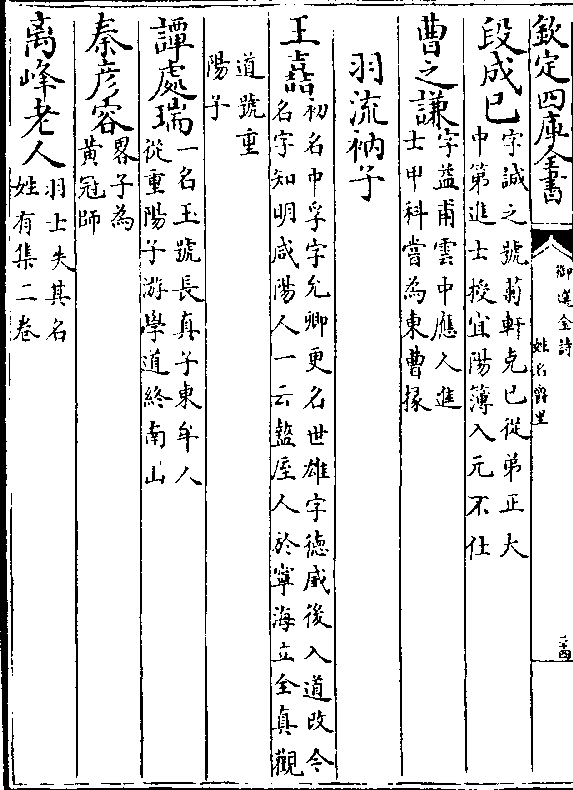 欽定四庫全書
御選金詩
姓名爵里
段成己字誠之號菊軒克已從弟正大
中第進士授宜陽簿入元不仕
曹之謙字益甫雲中應人進
士甲科嘗為東曹掾
羽流衲子
王嚞初名中孚字允卿更名世雄字德威後入道改今
名字知明咸陽人一云盩厔人於寧海立全真觀
道號重
陽子
譚處瑞一名玉號長真子東牟人
從重陽子游學道終南山
秦彦容畧子為
黄冠師
离峰老人羽士失其名
姓有集二卷